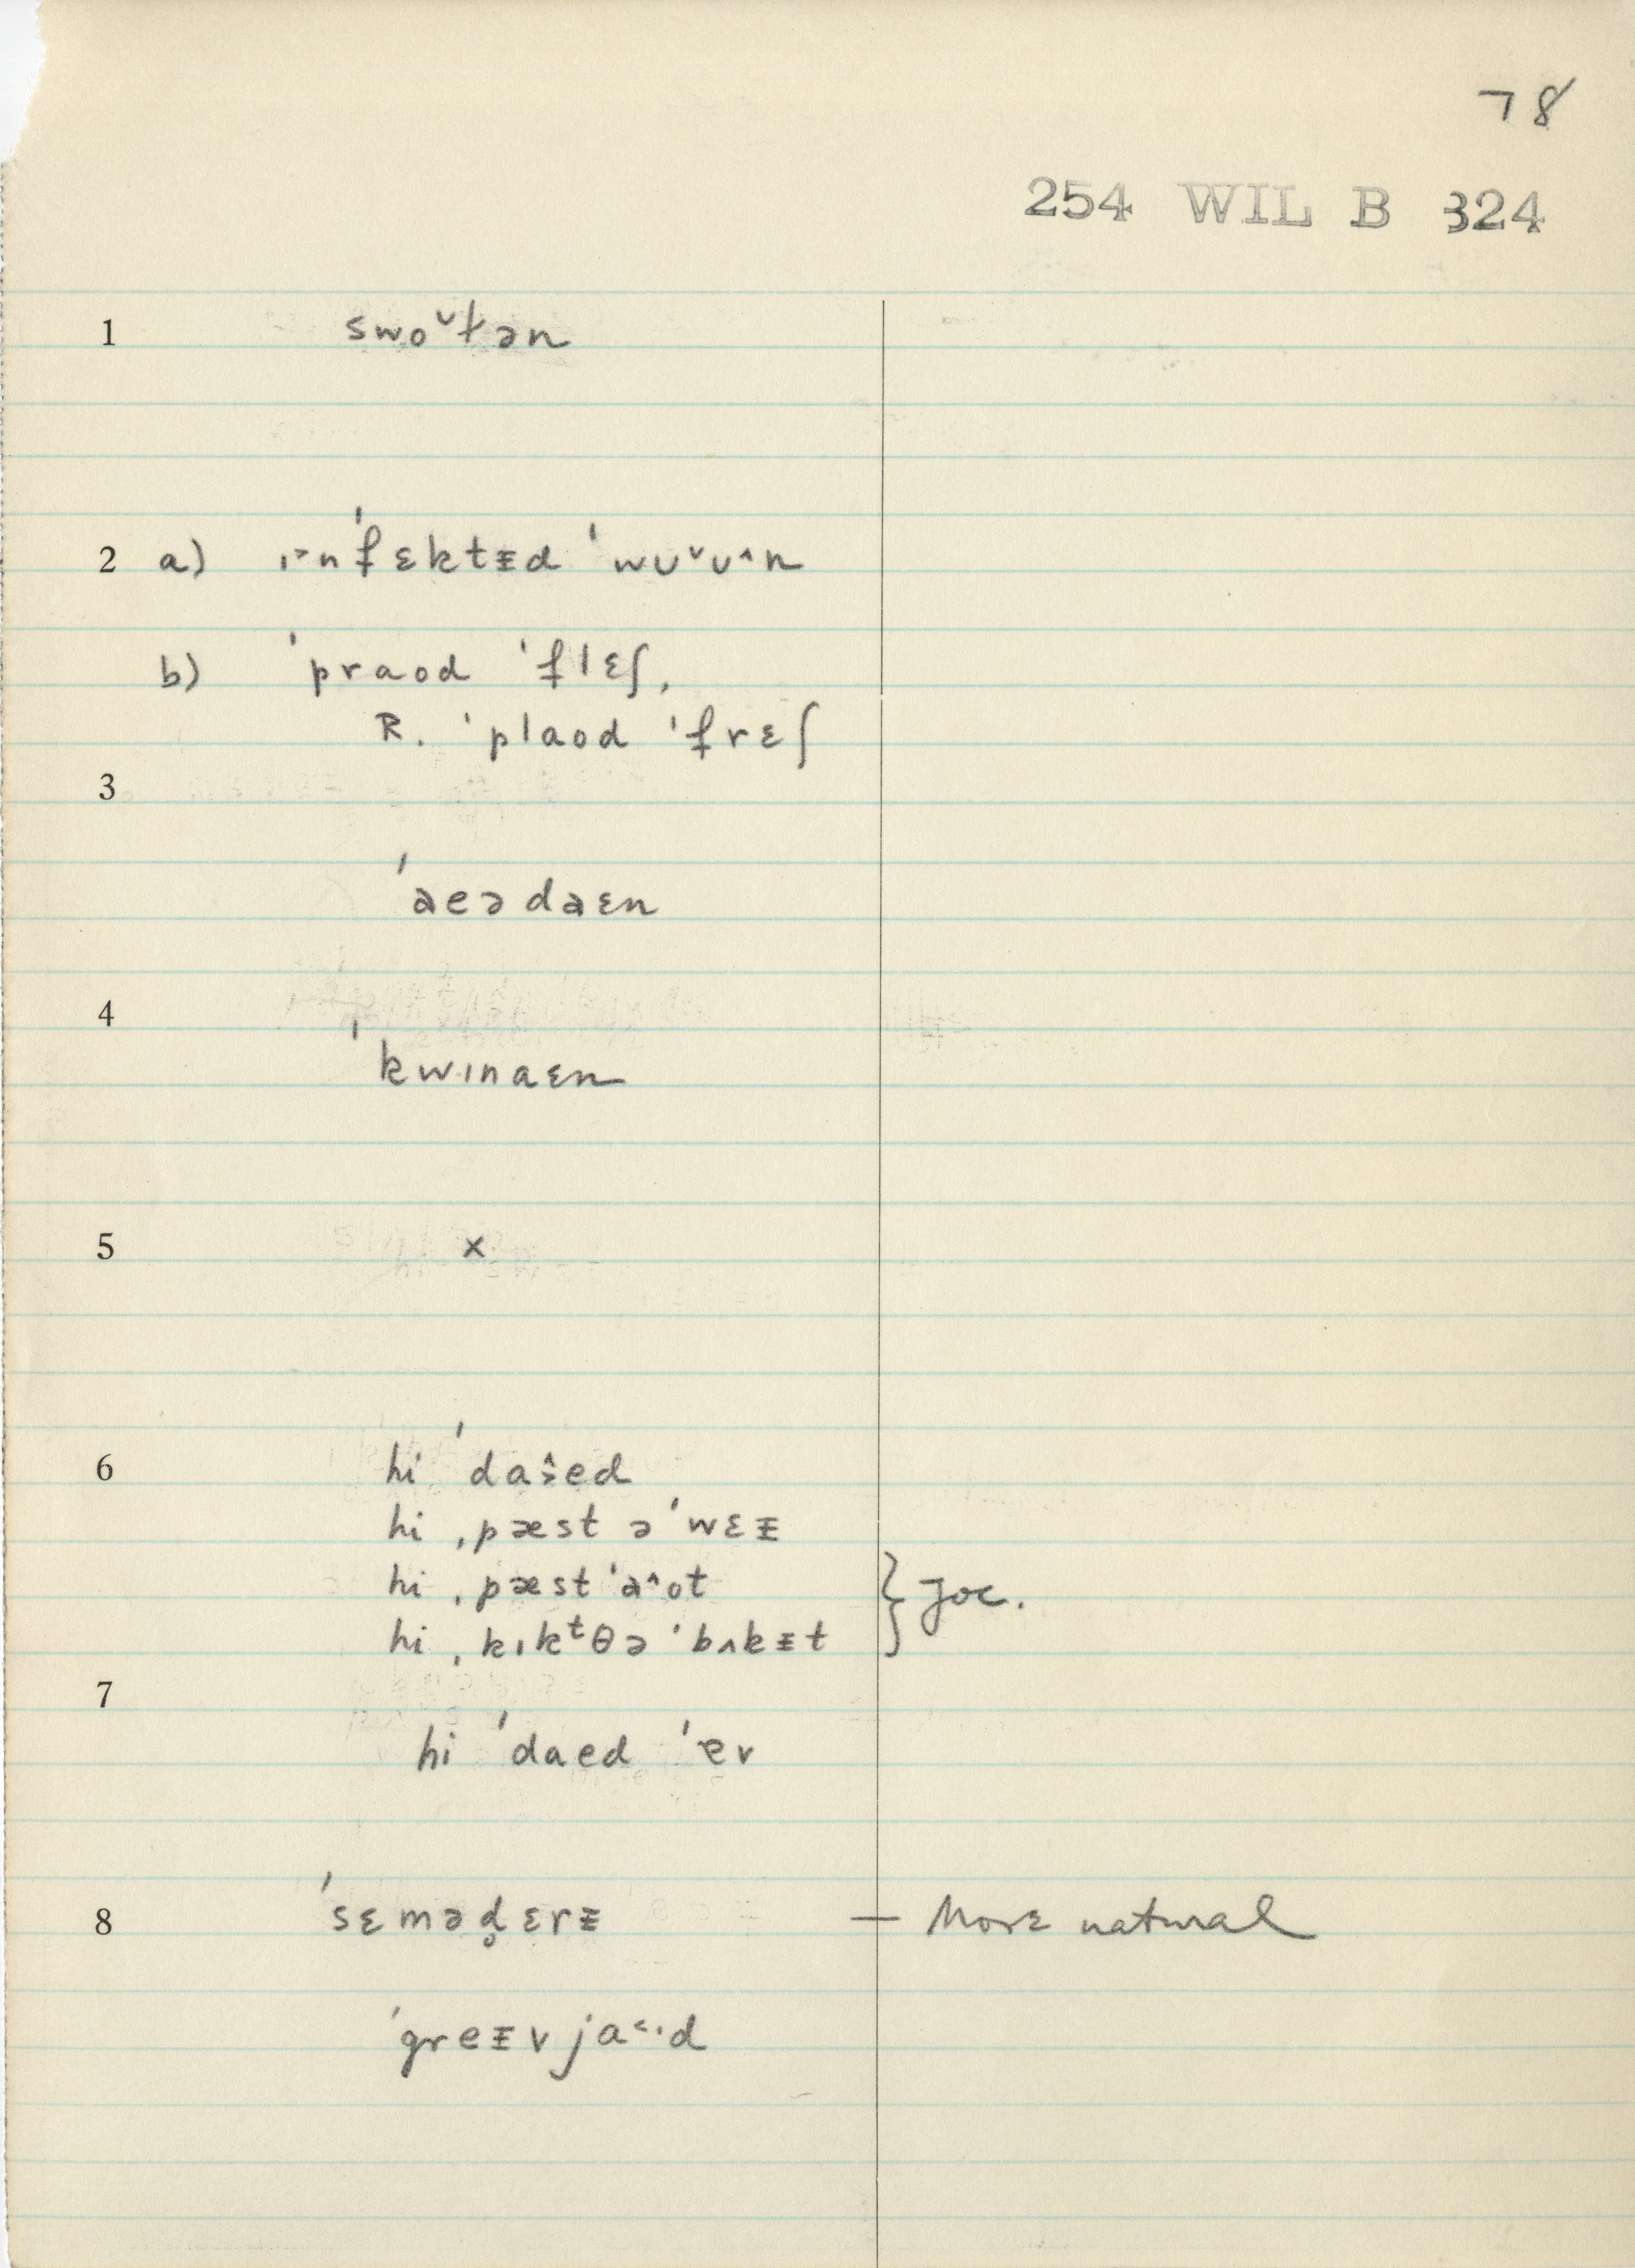 78
254 WIL B 324
1 swo˅ɫən
2 a) ɪ˃nˈfɛktɪd ˈwʊ˅ʊ˄n
b) ˈpraod ˈflɛʃ,
R. ˈplaod ˈfrɛʃ
3
ˈaeədaɛn
4
ˈkwɪnaɛn
5 x
6 hi ˈdaˑed
hi ˌpæst əˈwɛᵻ
hi ˌpæst ˈa˄ot
hi ˌkɪkᵗθə ˈbʌkᵻt } Joc.
7
hi ˈdaed ˈev
8 ˈsɛməd̥ɛrᵻ — More natural
ˈgreᵻvja˂ˑd